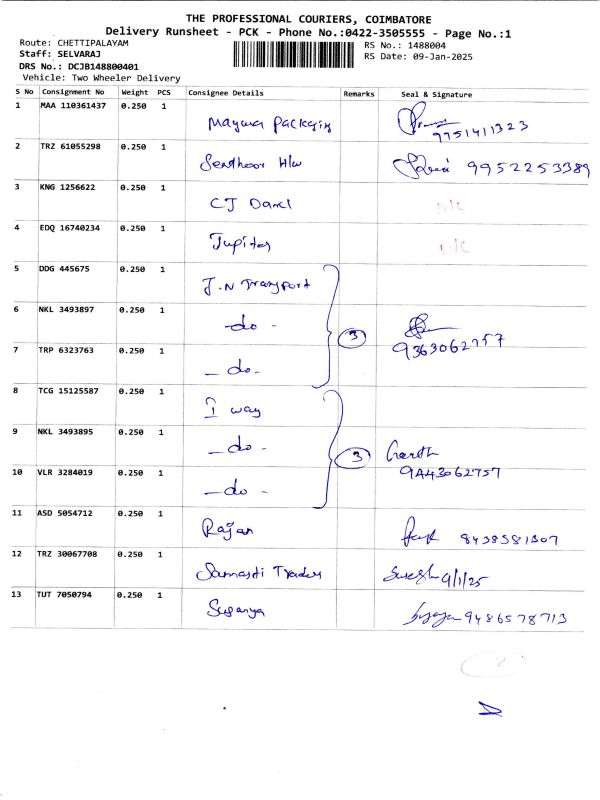 THE PROFESSIONAL COURIERS, COIMBATORE
Delivery Runsheet - PCK - Phone No.:0422-3505555 - Page No.:1
Route: CHETTIPALAYAM
Staff: SELVARAJ
DRS No.: DCJB148800401
Vehicle: Two Wheeler Delivery
RS No.: 1488004
RS Date: 09-Jan-2025
S No Consignment No Weight PCS Consignee Details Remarks Seal & Signature
1 MAA 110361437 0.250 1 Mayura Packaging
9751411323
2 TRZ 61055298 0.250 1 Senthoor H/w 9952253389
3 KNG 1256622 0.250 1 CJ Darcl D/C
4 EDQ 16740234 0.250 1 Jupiter D/C
5 DDG 445675 0.250 1 J.N Transport
6 NKL 3493897 0.250 1 -do- 3
9363062757
7 TRP 6323763 0.250 1 -do-
8 TCG 15125587 0.250 1 I way
9 NKL 3493895 0.250 1 -do- 3
10 VLR 3284019 0.250 1 -do- 9A43062757
11 ASD 5054712 0.250 1 Rajan 8438581307
12 TRZ 30067708 0.250 1 Traders Suresh 9/1/25
13 TUT 7050794 0.250 1 9486578713
2